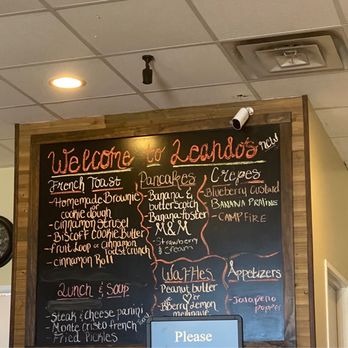 Welcome to Leando's
French Toast
- Homemade Brownie
or
cookie dough
- cinnamon strusel
- Biscoff cookie Butter
- fruit loop or cinnamon
toast crunch
- cinnamon Roll
Pancakes
- Banana &
butterscotch
- Banana foster
M&M
- Strawberry
& cream
Crepes
new
- Blueberry custard
- BANANA PRALINES
- CAMPFIRE
Waffles
Peanut butter
lover
Berry Lemon
Appetizers
- Jalapeño
poppers
Lunch & Soup
- Steak & cheese panini
- Monte cristo french
- Fried Pickles
Please